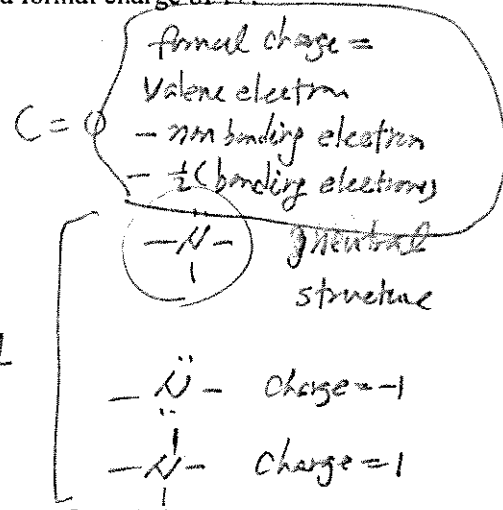 formal charge of
formal charge =
Valene electron
C = 0
- non bonding electron
- 1/2 (bonding electrons)
-N- neutral
structure
- N - Charge = -1
-N- Charge = 1